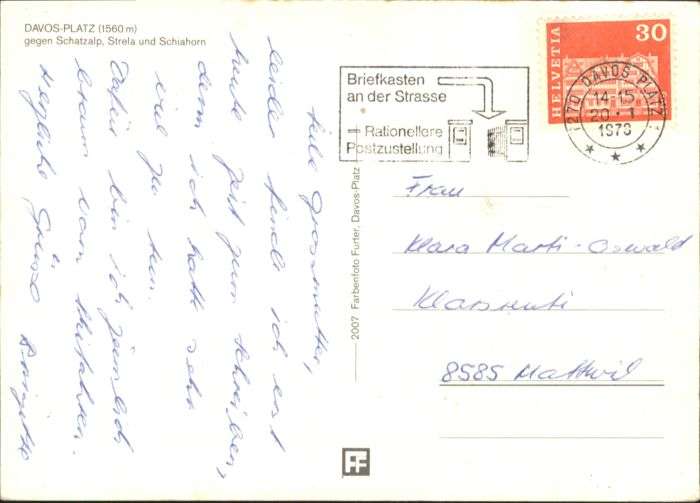 DAVOS-PLATZ (1560 m)
gegen Schatzalp, Strela und Schiahorn
Liebe Grossmutter,
leider finde ich erst
heute Zeit zum Schreiben,
denn ich hatte sehr
viel zu tun.
Dafür bin ich ziemlich
braun vom Skifahren.
Herzliche Grüsse Brigitte
2007 Farbenfoto Furter, Davos-Platz
Briefkasten
an der Strasse
Rationellere
Postzustellung
HELVETIA 30
7270 DAVOS PLATZ 1
14-15
20.-1
1973
Frau
Klara Marti-Oswald
8585 Mattwil
FF